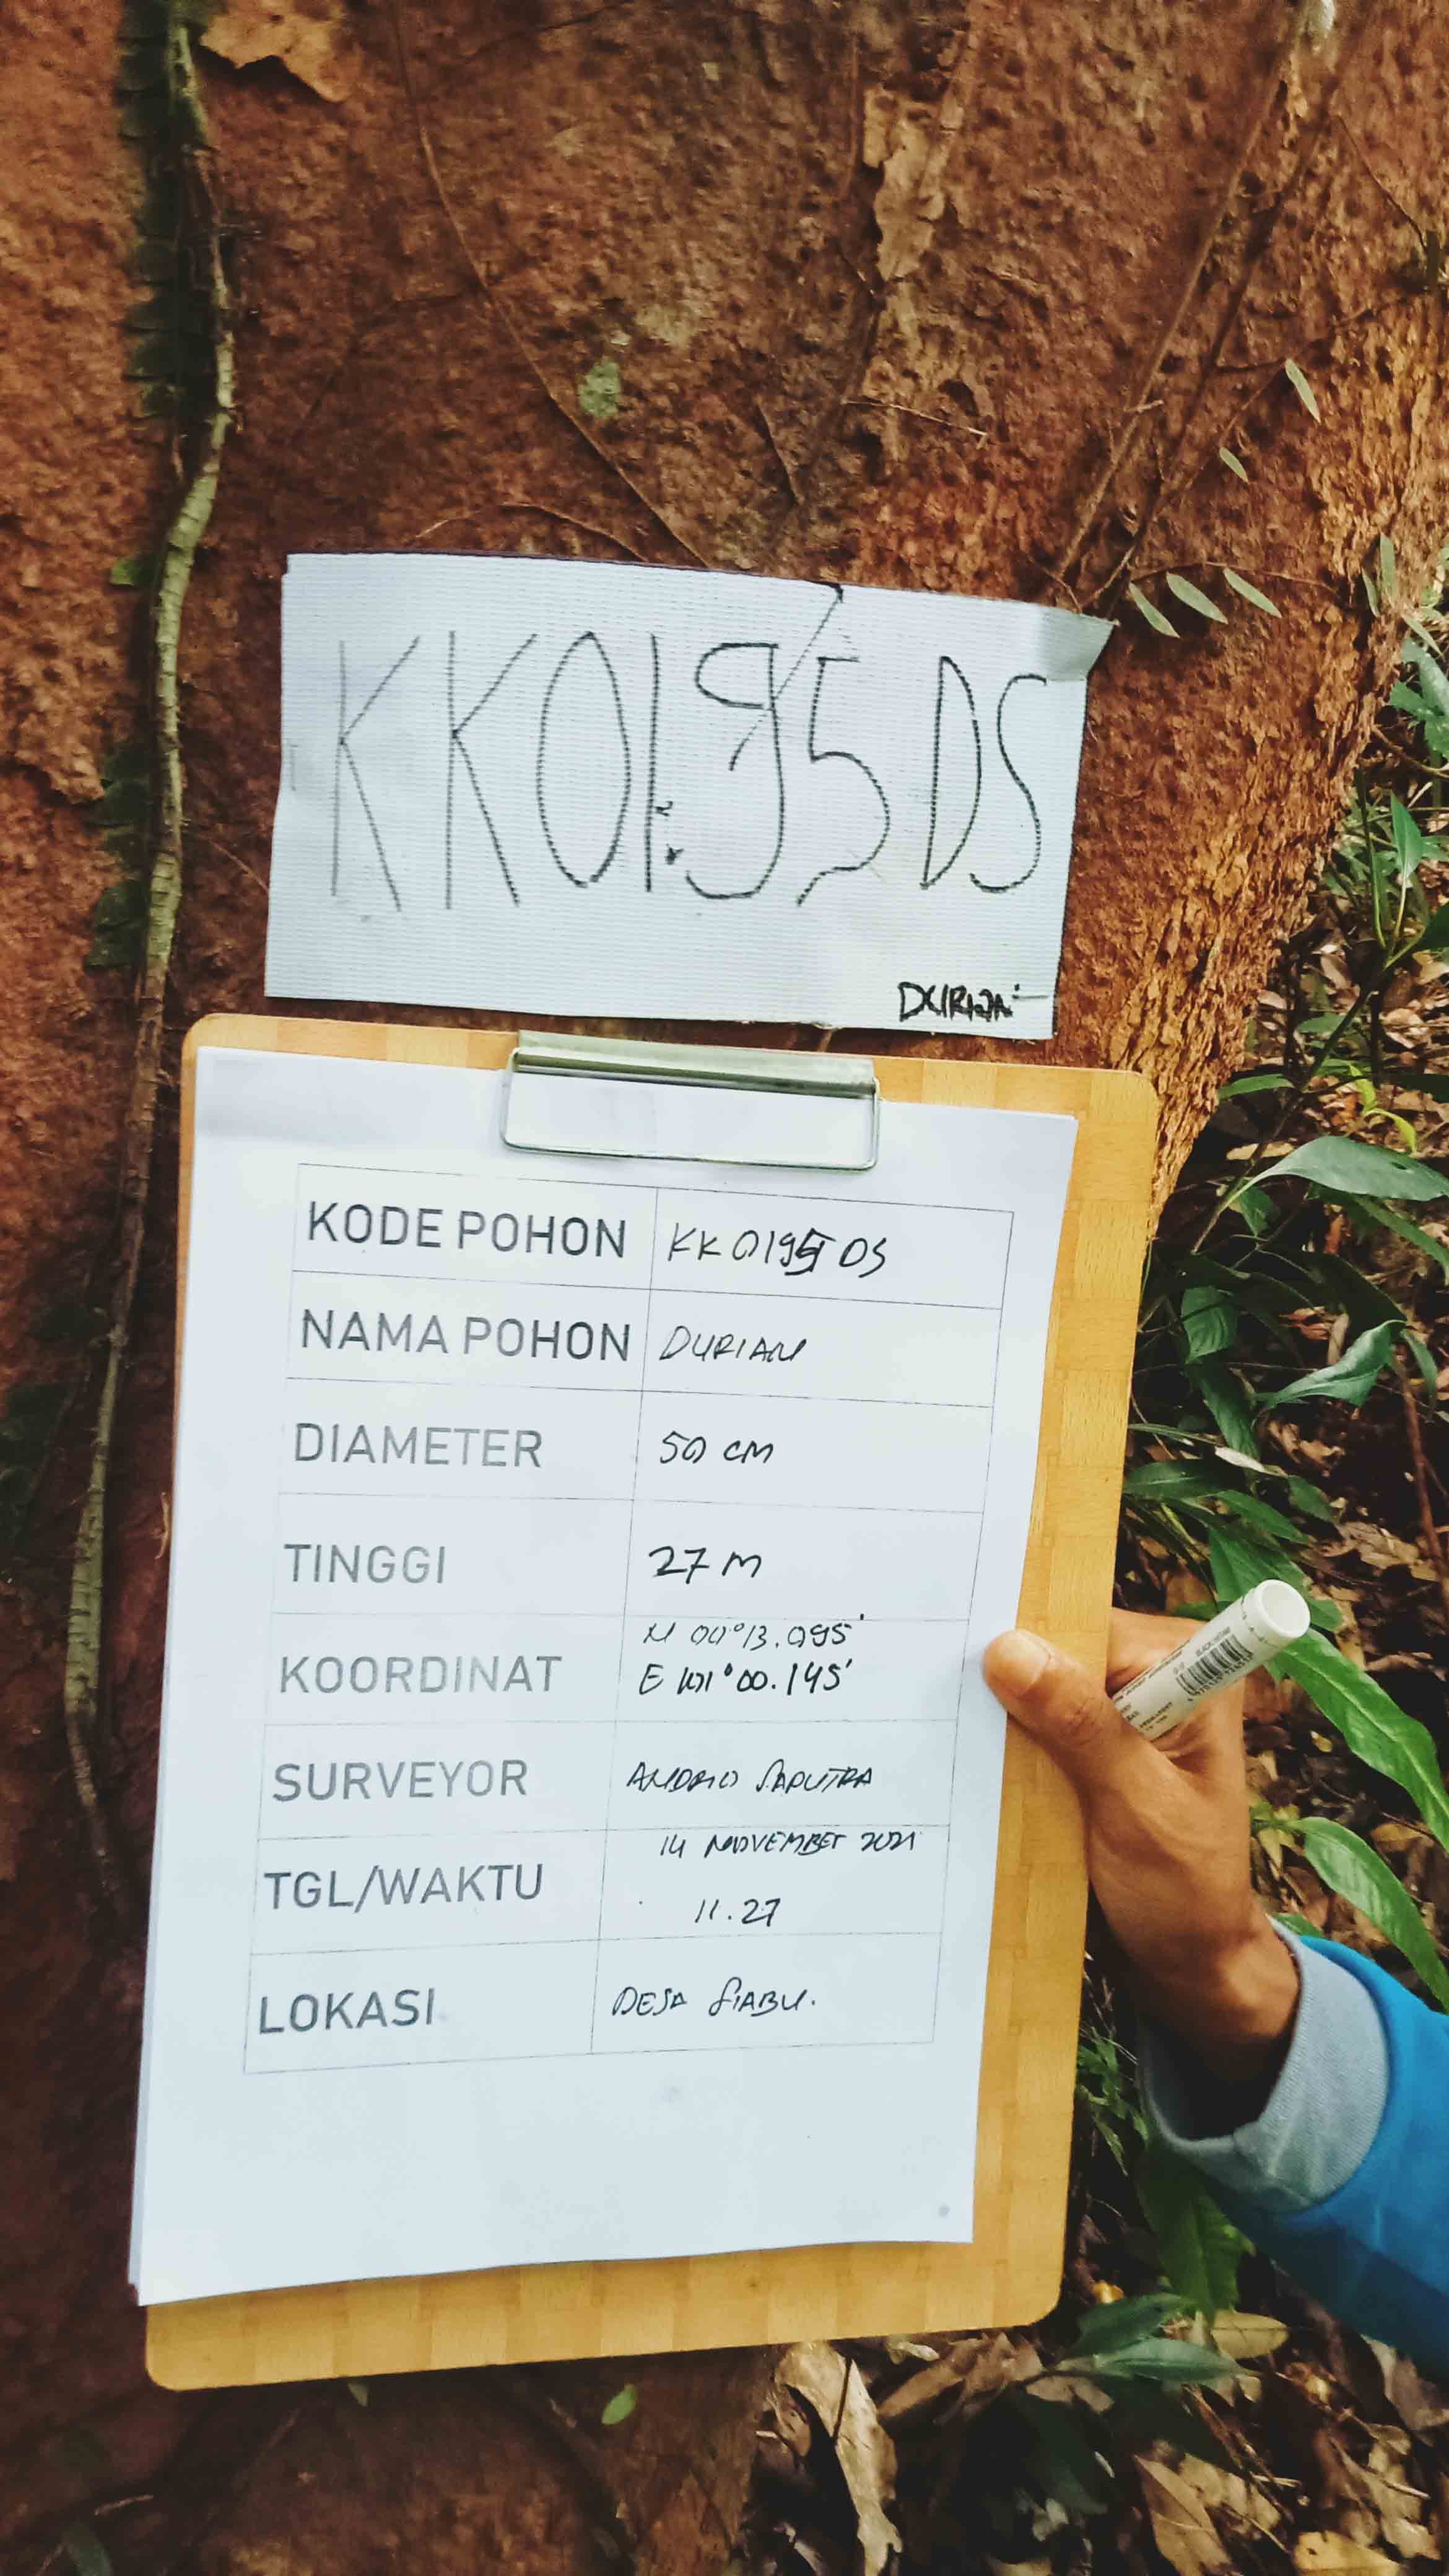 KK0195 DS
DURIAN
KODE POHON KK0195 DS
NAMA POHON DURIAN
DIAMETER 50 CM
TINGGI 27 M
KOORDINAT N 00°13.095'
E 101°00.145'
SURVEYOR ANDRIO SAPUTRA
TGL/WAKTU 14 NOVEMBER 2021
11.27
LOKASI DESA SIABU.